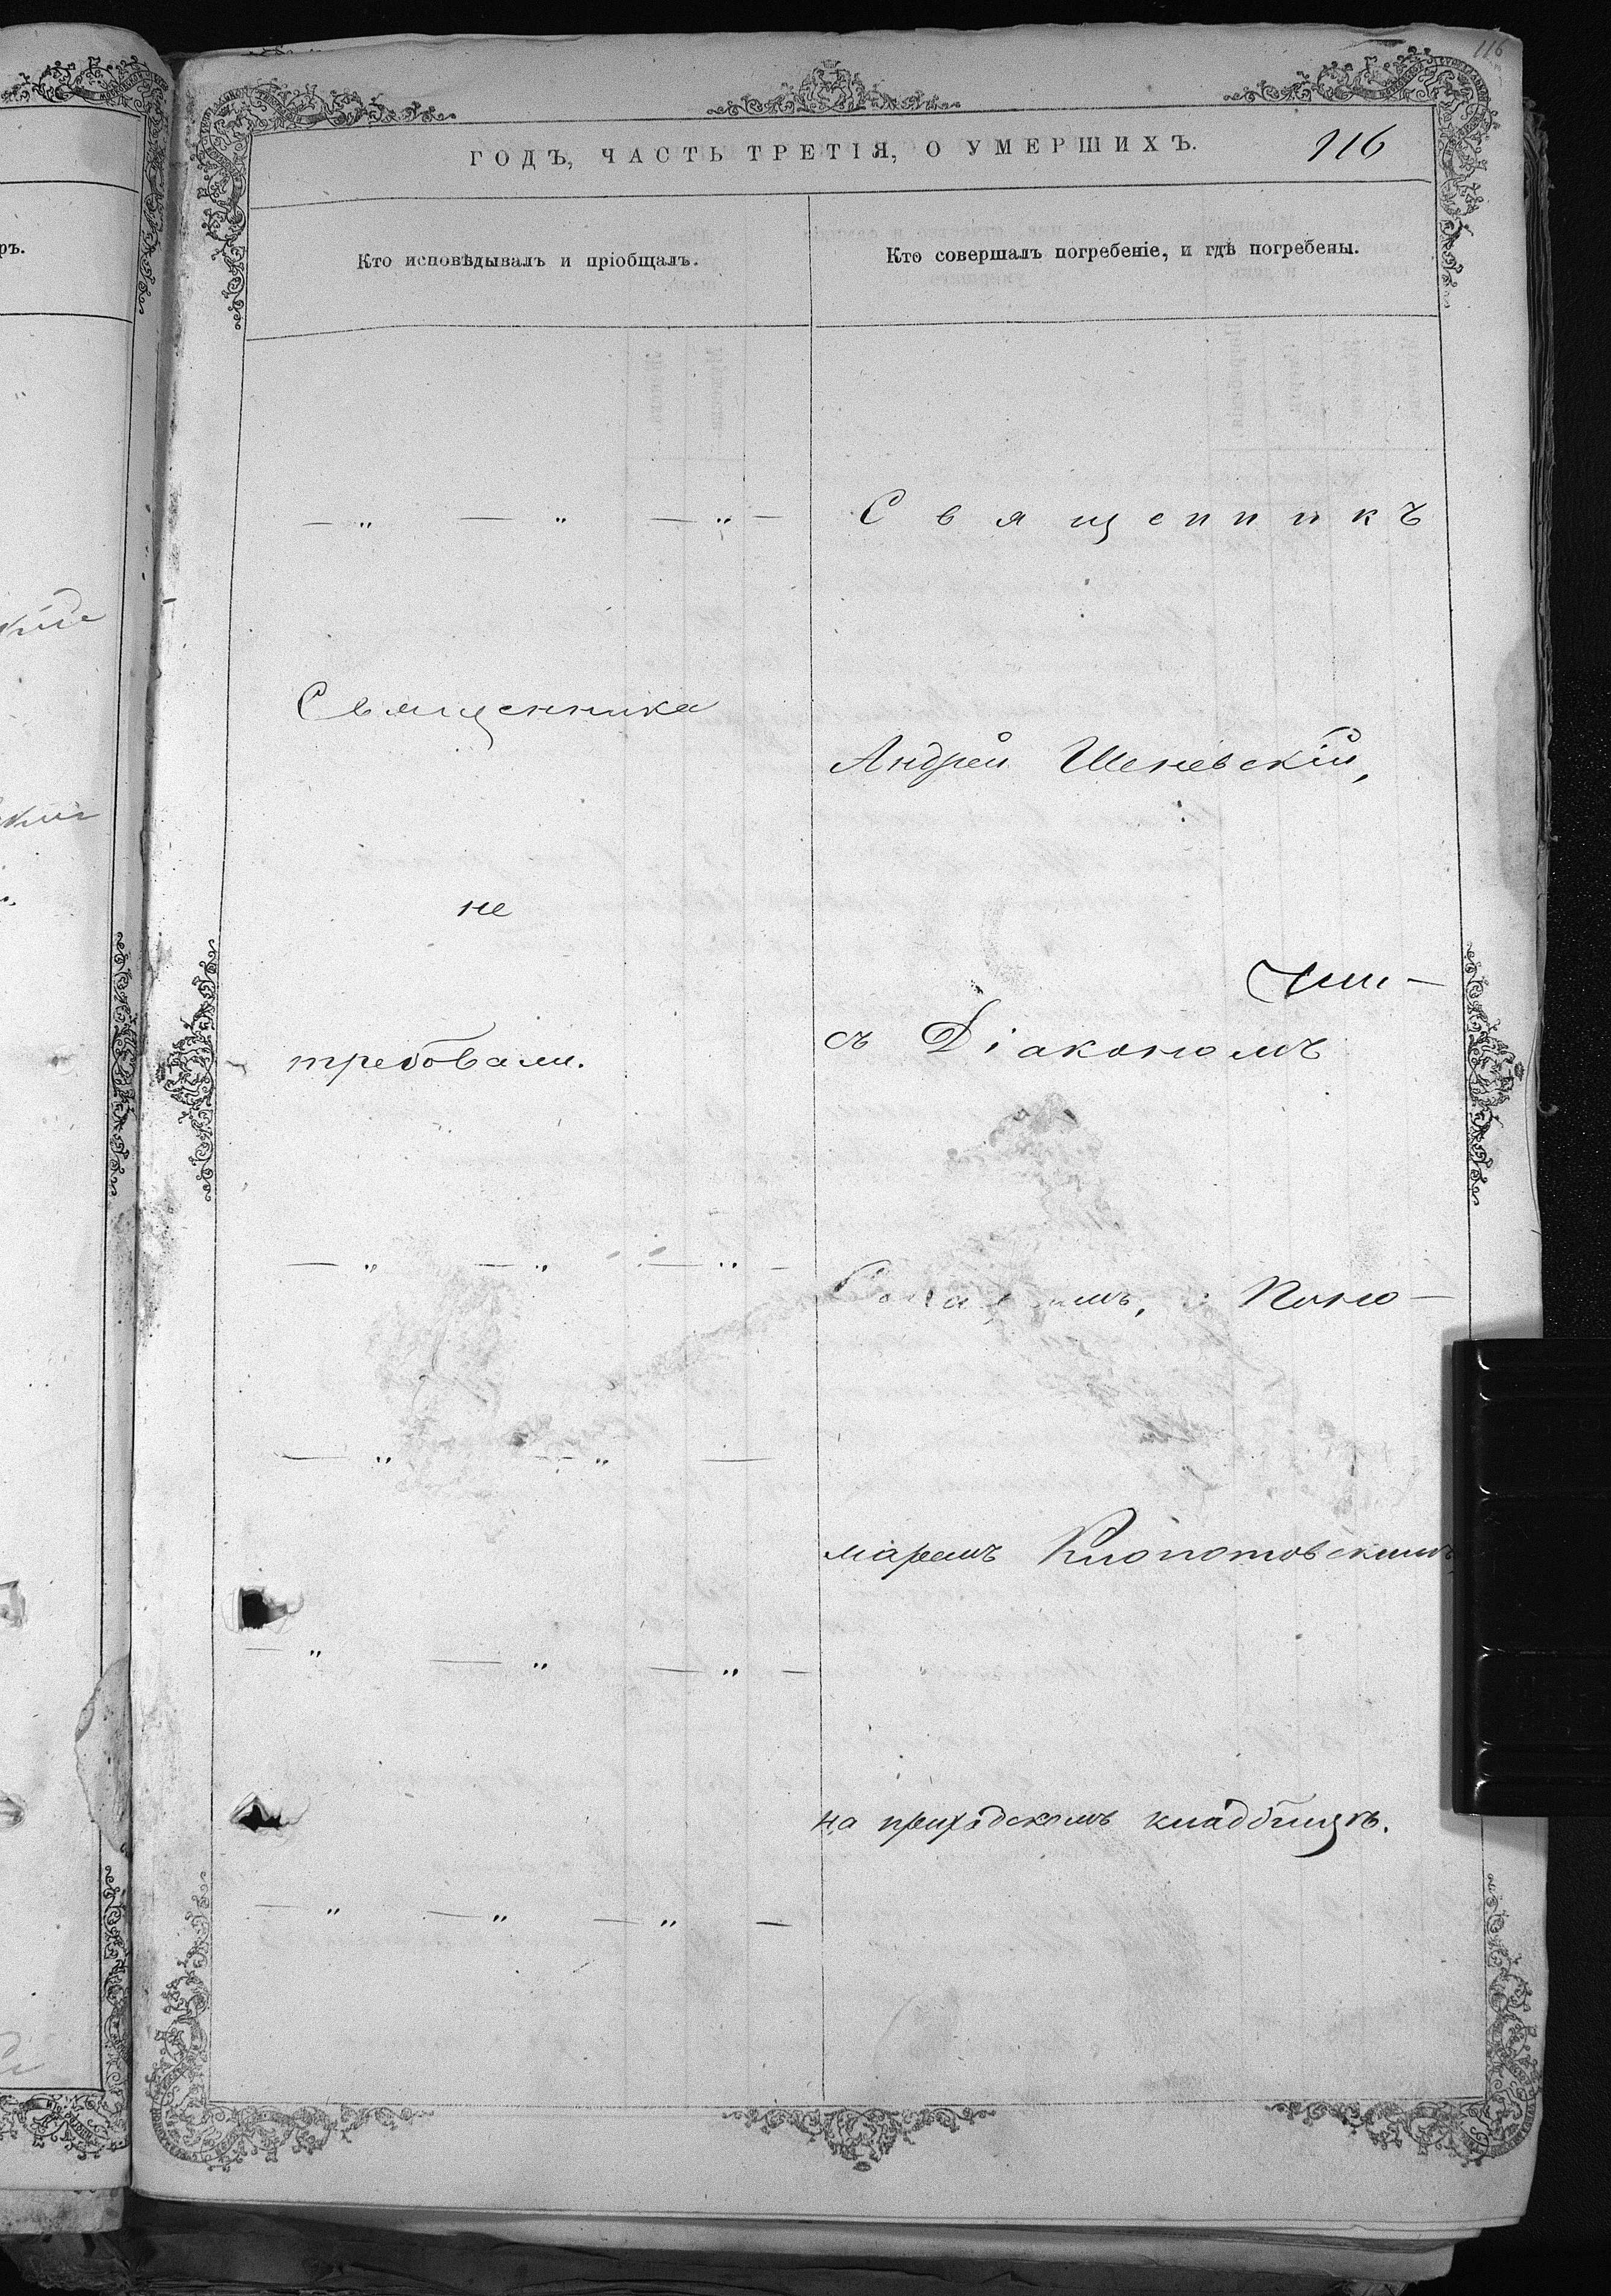 116
ГОДЪ, ЧАСТЬ ТРЕТІЯ, О УМЕРШИХЪ.
116
Кто исповѣдывалъ и пріобщалъ.
Кто совершалъ погребеніе, и гдѣ погребены.
— „ — „ — „ —
Священника
не
требовали.
— „ — „ — „ —
— „ — „ —
— „ — „ — „ —
— „ — „ — „ —
Священникъ
Андрей Шеневскій,
съ Діакономъ
Поно-
маремъ Клопотовскимъ
на приходскомъ кладбищѣ.
ръ.